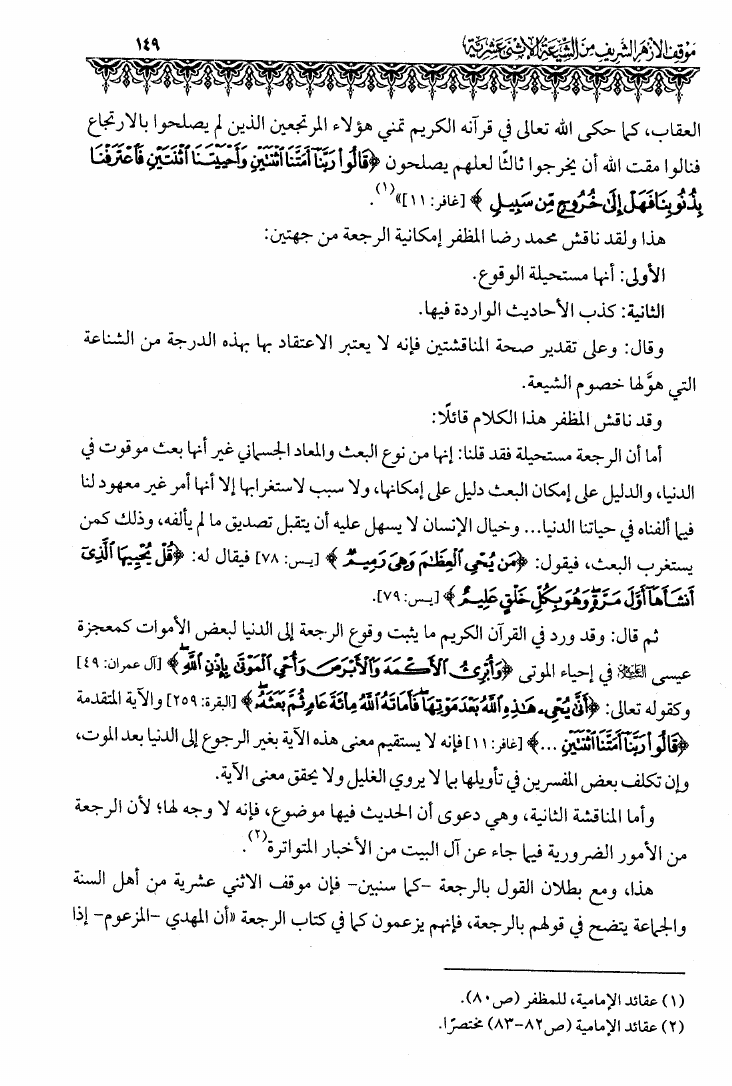 موقف الأزهر الشريف من الشيعة الاثنى عشرية
١٤٩
العقاب، كما حكى الله تعالى في قرآنه الكريم تمني هؤلاء المرتجعين الذين لم يصلحوا بالارتجاع
فنالوا مقت الله أن يخرجوا ثالثًا لعلهم يصلحون ﴿قَالُوا رَبَّنَا أَمَتَّنَا اثْنَتَيْنِ وَأَحْيَيْتَنَا اثْنَتَيْنِ فَاعْتَرَفْنَا
بِذُنُوبِنَا فَهَلْ إِلَى خُرُوجٍ مِّن سَبِيلٍ ﴾ [غافر: ١١]»(١).
هذا ولقد ناقش محمد رضا المظفر إمكانية الرجعة من جهتين:
الأولى: أنها مستحيلة الوقوع.
الثانية: كذب الأحاديث الواردة فيها.
وقال: وعلى تقدير صحة المناقشتين فإنه لا يعتبر الاعتقاد بها بهذه الدرجة من الشناعة
التي هوَّلها خصوم الشيعة.
وقد ناقش المظفر هذا الكلام قائلًا:
أما أن الرجعة مستحيلة فقد قلنا: إنها من نوع البعث والمعاد الجسماني غير أنها بعث موقوت في
الدنيا، والدليل على إمكان البعث دليل على إمكانها، ولا سبب لاستغرابها إلا أنها أمر غير معهود لنا
فيما ألفناه في حياتنا الدنيا... وخيال الإنسان لا يسهل عليه أن يتقبل تصديق ما لم يألفه، وذلك كمن
يستغرب البعث، فيقول: ﴿مَن يُحْيِ الْعِظَامَ وَهِيَ رَمِيمٌ ﴾ [يس: ٧٨] فيقال له: ﴿قُلْ يُحْيِيهَا الَّذِي
أَنشَأَهَا أَوَّلَ مَرَّةٍ وَهُوَ بِكُلِّ خَلْقٍ عَلِيمٌ ﴾ [يس: ٧٩].
ثم قال: وقد ورد في القرآن الكريم ما يثبت وقوع الرجعة إلى الدنيا لبعض الأموات كمعجزة
عيسى عليه السلام في إحياء الموتى ﴿وَأُبْرِئُ الْأَكْمَهَ وَالْأَبْرَصَ وَأُحْيِ الْمَوْتَى بِإِذْنِ اللَّهِ ﴾ [آل عمران: ٤٩]
وكقوله تعالى: ﴿أَنَّى يُحْيِي هَذِهِ اللَّهُ بَعْدَ مَوْتِهَا فَأَمَاتَهُ اللَّهُ مِائَةَ عَامٍ ثُمَّ بَعَثَهُ ﴾ [البقرة: ٢٥٩] والآية المتقدمة
﴿قَالُوا رَبَّنَا أَمَتَّنَا اثْنَتَيْنِ ...﴾ [غافر: ١١] فإنه لا يستقيم معنى هذه الآية بغير الرجوع إلى الدنيا بعد الموت،
وإن تكلف بعض المفسرين في تأويلها بما لا يروي الغليل ولا يحقق معنى الآية.
وأما المناقشة الثانية، وهي دعوى أن الحديث فيها موضوع، فإنه لا وجه لها؛ لأن الرجعة
من الأمور الضرورية فيما جاء عن آل البيت من الأخبار المتواترة(٢).
هذا، ومع بطلان القول بالرجعة -كما سنبين- فإن موقف الاثني عشرية من أهل السنة
والجماعة يتضح في قولهم بالرجعة، فإنهم يزعمون كما في كتاب الرجعة «أن المهدي -المزعوم- إذا
(١) عقائد الإمامية، للمظفر (ص٨٠).
(٢) عقائد الإمامية (ص٨٢-٨٣) مختصرًا.